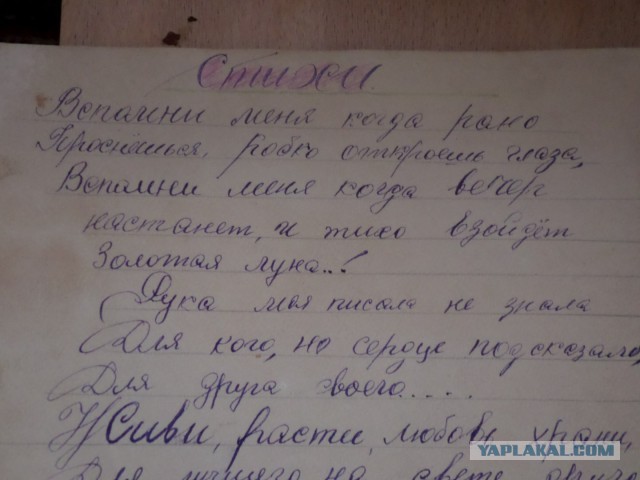 Стихи.
Вспомни меня когда рано
Проснёшься, робко откроешь глаза,
Вспомни меня когда вечер
настанет, и тихо взойдёт
Золотая луна..!
Рука моя писала не знала
Для кого, но сердце подсказало,
Для друга своего.....
Живи, расти, любовь храни,
Для на свете
YAPLAKAL.COM